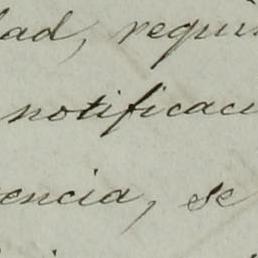 dad, requi
notificaci
encia, se